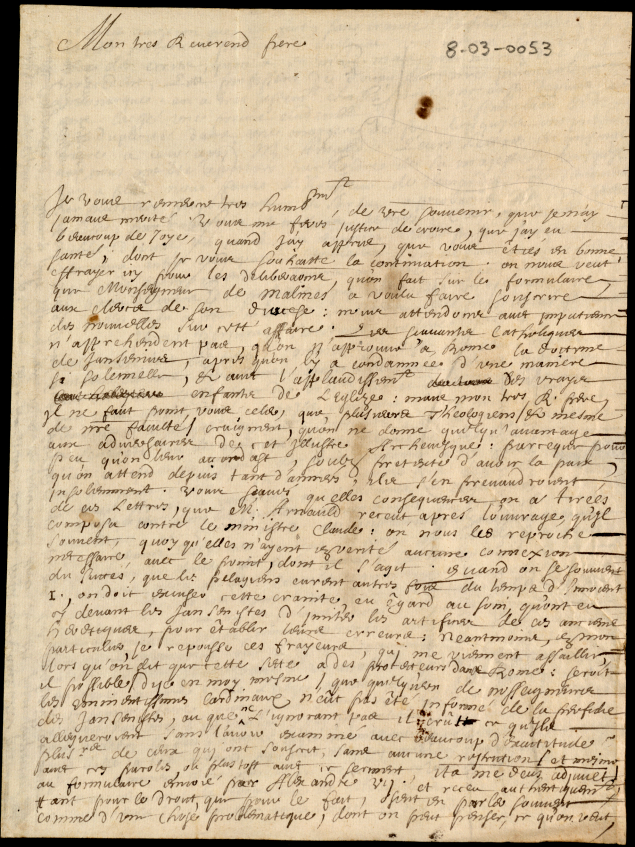 Mon tres Reverend frere
8-03-0053
Je vous remercie tres humbmt de vre souvenir, que je n'ay
jamais merité. Vous me ferés justice de croire, que j'ay eu
beaucoup de joye, quand j'ay appris, que vous êtiés en bonne
santé, dont je vous souhaitte la continuation. on nous veut
effrayer icy pour les deliberaons, qu'on fait sur le formulaire,
que Monseigneur de Malines a voulu faire souscrire
aux clercs de son diocese: nous attendons avec impatience
des nouvelles sur cett' affaire. Les sçavants Catholiques
n'apprehendent pas, qu'on n'approuve à Rome la doctrine
de Jansenius, apres qu'on l'y a condamnée d'une maniere
si solemnelle, et avec l'applaudissemt des vrays
enfants de l'Eglize: mais mon tres R. frere,
il ne faut point vous celer, que plusieurs Theologiens, et mesme
de nre faculté, craignent, qu'on ne donne quelqu'avantage
aux adversaires de cet illustre Archevesque: parceque pour
peu qu'on leur accordast soubs pretexte d'avoir la paix,
qu'on attend depuis tant d'années, ils s'en prevaudroient
insolemment. Vous sçavés qu'elles consequences on a tirées
de ces Lettres, que Mr. Arnauld receut après l'ouvrage, qu'il
composa contre le ministre Claude: on nous les reproche
souvent, quoy qu'elles n'ayent en verité aucune connexion
necessaire avec le point, dont il s'agit. quand on se souvient
du succés, que les pelagiens eurent autres fois du temps d'Innocent
I. on doit excuser cette crainte, eu êgard au soin, qu'ont eu
cy devant les Jansenistes d'imiter les artifices de ces anciens
heretiques, pour êtablir leurs erreurs: neantmoins, en mon
particulier, je repousse ces frayeurs, qui me viennent assaillir
lors qu'on dit que cette secte a des protecteurs dans Rome: seroit
il possible, dis je en moy mesme, que quelqu'un de nosseigneurs
les eminentissimes Cardinaux n'eût pas êté informé de la perfidie
des Jansenistes, ou que ne l'ignorant pas il crût ce qu'ils
allegueroient sans l'avoir examiné avec beaucoup d'exactitude
plusrs de ceux qui ont souscrit, sans aucune restriction, et mesme
avec ces paroles ou plustost avec ce serment, ita me deus adjuvet,
au formulaire envoié par Alexandre VII. et receu authentiquemt
tant pour le droit, que pour le fait, osent en parler souvent
comme d'une chose problematique, dont on peut penser, ce qu'on veut,